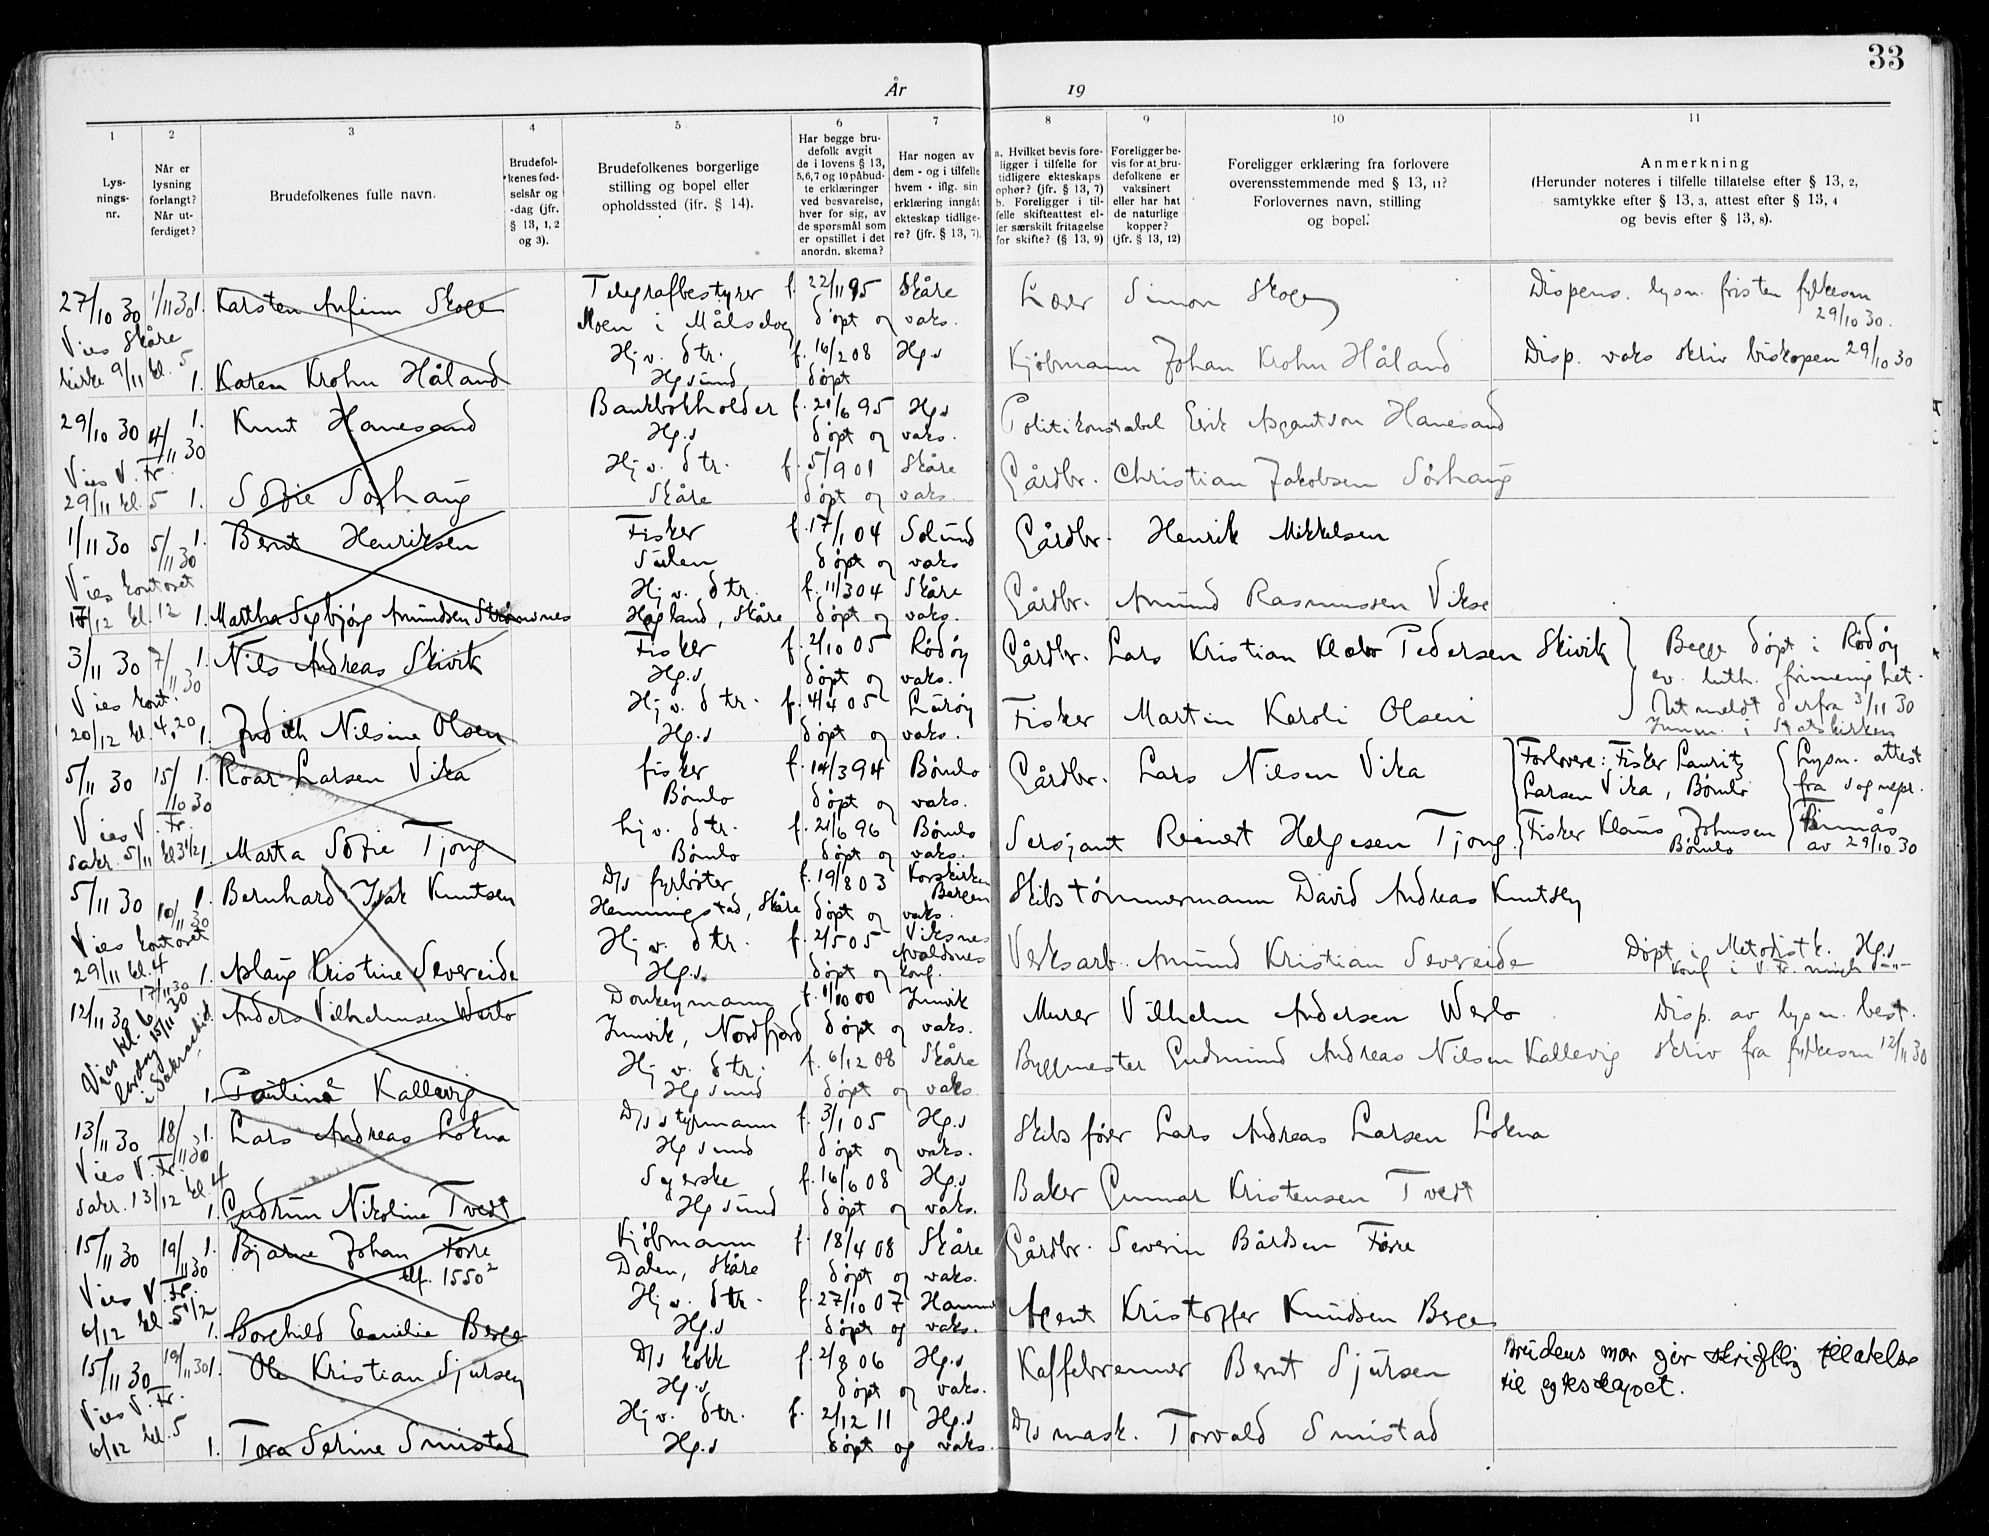 33
År 19
1
2
3
4
5
6
7
8
9
10
11
Lys-
nings-
nr.
Når er
lysning
forlangt?
Når ut-
ferdiget?
Brudefolkenes fulle navn.
Brudefol-
kenes fød-
selsår og
-dag (jfr.
§ 13, 1, 2
og 3).
Brudefolkenes borgerlige
stilling og bopel eller
opholdssted (ifr. § 14).
Har begge bru-
defolk avgit
de i lovens § 13,
5,6,7 og 10 påbud-
te erklæringer
ved besvarelse,
hver for sig, av
de spørsmål som
er opstillet i det
anordn. skema?
Har nogen av
dem - og i tilfelle
hvem - iflg. sin
erklæring inngåt
ekteskap tidlige-
re? (jfr. § 13, 7).
a. Hvilket bevis fore-
ligger i tilfelle for
tidligere ekteskaps
ophør? (jfr. § 13, 7)
b. Foreligger i til-
felle skifteattest el-
ler særskilt fritagelse
for skifte? (§ 13, 9)
Foreligger be-
vis for at bru-
defolkene er
vaksinert
eller har hat
de naturlige
kopper?
(jfr. § 13, 12)
Foreligger erklæring fra forlovere
overensstemmende med § 13, 11?
Forlovernes navn, stilling
og bopel.
Anmerkning
(Herunder noteres i tilfelle tillatelse efter § 13, 2,
samtykke efter § 13, 3, attest efter § 13, 4
og bevis efter § 13, 8).
27/10 30 1/11 30 1. Karsten Anfinn Skoge Telegrafbestyrer f. 22/11 95 Skåre Lærer Simon Skoge Dispens. lysn. fristen fylkesm
Vies Skåre Moen i Målselv døpt og vaks. 29/10 30.
kirke 9/11 kl. 5 Hj v. dtr. f. 16/2 08 Hg.s Kjøbmann Johan Krohn Håland Disp. vaks skriv biskopen 29/10 30
1. Karen Krohn Håland Hgsund døpt
29/10 30 4/11 30 1. Knut Hanesand Bankbokholder f. 21/6 95 Hg.s Politikonstabel Eirik Asgautson Hanesand
Hg.s døpt og vaks.
Vies V. Fr. Hj v. dtr. f. 5/9 01 Skåre Gårdbr. Christian Jakobsen Sørhaug
29/11 kl. 5 1. Sofie Sørhaug Skåre døpt og vaks.
1/11 30 5/11 30 1. Bernt Henriksen Fisker f. 17/1 04 Solund Gårdbr. Henrik Mikkelsen
Sulen døpt og vaks
Vies kontoret Hj v. dtr. f. 11/3 04 Skåre Gårdbr. Amund Rasmussen Vikse
17/12 kl. 12 1. Martha Sigbjørg Amundsen Strømsnes Hagland, Skåre døpt og vaks.
3/11 30 7/11 30 1. Nils Andreas Skivik Fisker f. 2/10 05 Rødøy Gårdbr. Lars Kristian Pedersen Skivik Begge døpt i Rødøy
Hg.s døpt og vaks. ev. luth. frimenighet.
Vies kont. Hj v. dtr. f. 4/4 05 Lurøy Fisker Martin Karoli Olsen Utmeldt derfra 3/11 30
20/12 kl. 4,20 1. Judith Nilsine Olsen Hg.s døpt og vaks. Innm. i Statskirken
5/11 30 15/10 30 1. Roar Larsen Vika fisker f. 14/3 94 Bømlo Gårdbr. Lars Nilsen Vika Forlovere: Fisker Lauritz Lysn. attest
Bømlo døpt og vaks. Larsen Vika, Bømlo fra sognepr.
Vies V. Fr. hj v. dtr. f. 21/6 96 Bømlo Sersjant Reinert Helgesen Tjong Fisker Klaus Johnsen
sakr. 5/11 kl 3 1/2 1. Marta Sofie Tjong Bømlo døpt og vaks. Bømlo av 29/10 30
5/11 30 10/11 30 1. Bernhard Isak Knutsen D/s fyrbøter f. 19/8 03 Korskirken Bergen Skibstømmermann David Andreas Knutsen
Hemmingstad, Skåre døpt og vaks.
Vies kontoret Hj v. dtr. f. 2/5 05 Viksnes Avaldsnes Verksarb. Amund Kristian Severeide Døpt i Metodistk. Hg.s
29/11 kl. 4 1. Aslaug Kristine Severeide Hg.s. døpt og konf. Konf i V. Fr. menigh -"-
12/11 30 17/11 30 Anders Vilhelmsen Werlo Donkeymann f. 1/10 00 Innvik Murer Vilhelm Andersen Werlo Disp. av lysn. best.
Vies kl. 6 lørdag 15/11 30 i Sakrastiet Innvik, Nordfjord døpt og vaks.
Hj v. dtr. f. 6/12 08 Skåre Byggmester Gudmund Andreas Nilsen Kallevig skriv fra fylkesm 12/11 30
1. Pauline Kallevig Hgsund døpt og vaks
13/11 30 18/11 30 1. Lars Andreas Lokna D/s styrmann f. 3/1 05 Hg.s Skibsfører Lars Andreas Larsen Lokna
Vies V. Fr. Hgsund døpt og vaks.
sakr. 13/12 kl. 4 Syerske f. 16/6 08 Hg.s Baker Gunnar Kristensen Tvedt
1. Gudrun Nikoline Tvedt Hgsund døpt og vaks.
15/11 30 19/11 30 1. Bjarne Johan Førre Kjøbmann f. 18/4 08 Skåre Gårdbr. Severin Bårdsen Førre
tlf. 1550² Dalen, Skåre døpt og vaks.
Vies V. Fr. Hj v. dtr. f. 27/10 07 Agent Kristoffer Knudsen Berge
6/12 kl. 5 1/2 1. Borghild Emilie Berge Hg.s døpt og vaks.
15/11 30 19/11 30 1. Ole Kristian Sjursen D/s kokk f. 2/8 06 Hg.s Kaffebrenner Bernt Sjursen Brudens mor gir skriftlig tillatelse
Hg.s døpt og vaks. til egteskapet.
Vies V. Fr. Hj v. dtr. f. 2/12 11 Hg.s D/s mask. Torvald Smistad
6/12 kl. 5 1. Tora Serine Smistad Hg.s døpt og vaks.